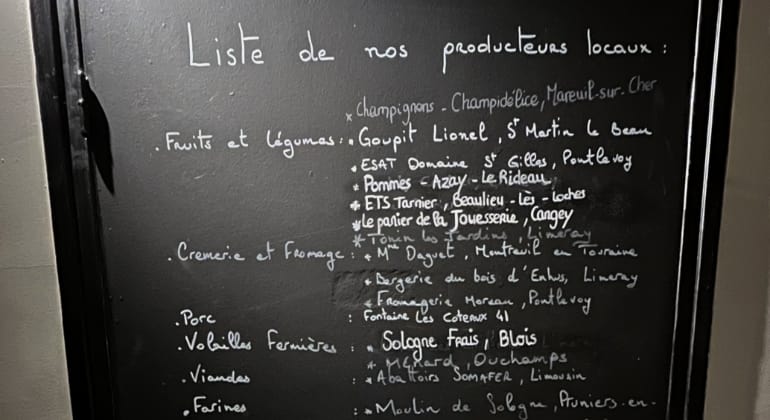 Liste de nos producteurs locaux :
* Champignons - Champidélice, Mareuil-sur-Cher
. Fruits et légumes : * Goupil Lionel, St Martin le Beau
* ESAT Domaine St Gilles, Pontlevoy
* Pommes - Azay - Le Rideau
* ETS Tarnier, Beaulieu - Lès - Loches
* le panier de la Jouesserie, Cangey
* les Jardins, Limeray
. Cremerie et Fromage : * Mme Daguet, Montreuil en Touraine
* Bergerie du bois d'Enhus, Limeray
* Fromagerie Moreau, Pontlevoy
. Porc : Fontaine Les Coteaux 41
. Volailles Fermières : * Sologne Frais, Blois
* Ménard, Ouchamps
. Viandes : * Abattoirs SOMAFER, Limousin
. Farines : * Moulin de Sologne, Pruniers-en-